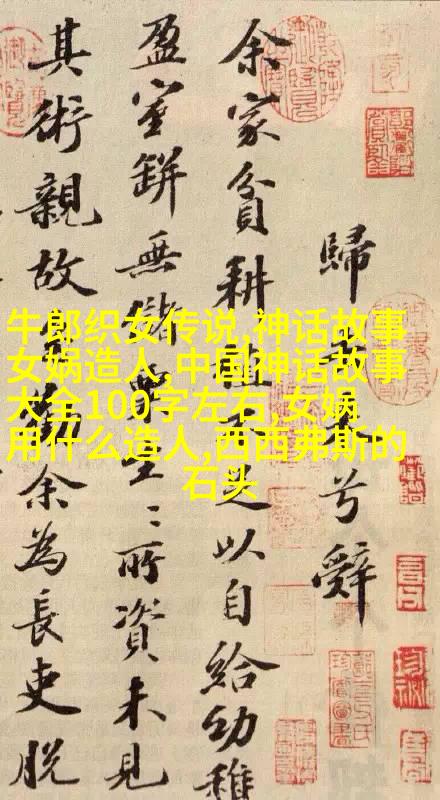 牛郎织女传说,神话故事
女娲造人,中国神话故事
大全100字左右,女娲
用什么造人,西西弗斯的
石头
歸去來兮辭
余家貧耕植不足以自給幼稚
盈室缾無儲粟生〻所資未見
其術親故多勸余為長吏脫